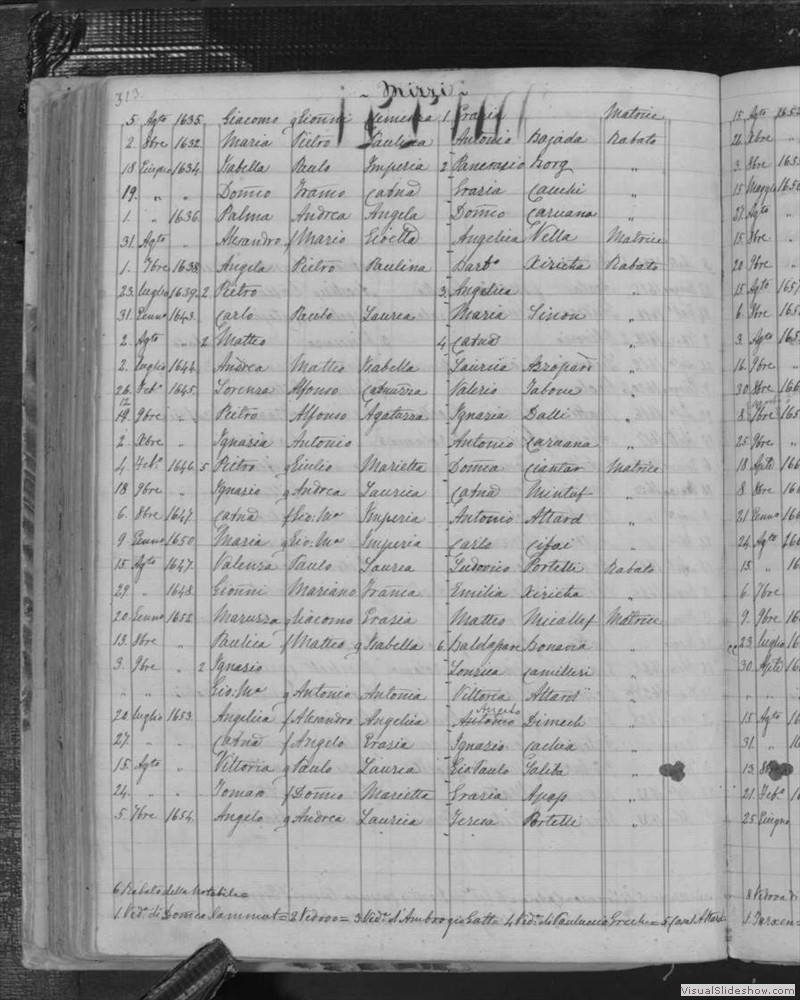 313.
Mizzi
5. Agto 1635. Giacomo q Gionni 1. Grazia Matrice
2. 8bre 1632. Maria Pietro Paulina Antonio Bajada Rabato
18 Giugno 1634. Isabella Paulo Imperia 2 Pancrasio Borg "
19. " " Domco Franco Catna Grazia Cauchi "
1. " 1636. Palma Andrea Angela Domco Caruana "
31. Agto " Alesandro f Mario Gioella Angelica Vella Matrice
1. 7bre 1638. Angela Pietro Paulina Barto Xiricha Rabato
23. luglio 1639. 2 Pietro 3. Angelica "
31. Genno 1643. Carlo Paulo Laurea Maria Sinon "
2. Agto " 2 Matteo 4 Catna "
2. luglio 1644. Andrea Matteo Isabella Laurica Azzopard "
26. Feb. 1645. Lorenza Alfonso Catnuzza Valerio "
12
19. 9bre " Pietro Alfonso Agatuzza Ignazia Dalli "
2. Xbre " Ignazia Antonio Antonio Caruana "
4. Feb. 1646. 5 Pietro q Giulio Marietta Domca Ciantar Matrice
18 9bre " Ignazio q Andrea Laurica Catna Mintuf "
6. 8bre 1647. Catna f Gio: Ma Imperia Antonio Attard "
9 Genno 1650. Maria q Gio: Ma Imperia Carlo Cifai "
15 Agto 1647. Valenza Paulo Laurea Ludovico Portelli Rabato
29 " 1648. Gionni Mariano Franca Emilia Xiricha "
20 Genno 1652. Maruzza q Giacomo Grazia Matteo Micallef Matrice
13. 8bre " Paulica f Matteo q Isabella 6. Baldasare Bonavia "
3. 9bre " 2 Ignazio Camilleri "
" " " Gio: Ma q Antonio Antonia Vittoria Attard "
Angelo
20 luglio 1653. Angelica f Alesandro Angelica Antonio Dimech "
27. " " Catna f Angelo Grazia Ignazio Cachia "
15. Agto " Vittoria q Paulo Laurea Gio Paulo Galita "
24. " " Tomaso f Domco Marietta Grazia Apap "
5. 7bre 1654. Angelo q Andrea Laurica Teresa Portelli "
6 Rabato della Notabile =
1 Veda di Domco Sammut = 2 Vedovo = 3 Veda d'Ambrogio Gatt = 4 Veda di Grech = 5 Casal Attard
15. Agto 1652
21. Xbre "
3. 8bre
15 Maggio
27. Agto "
15. 8bre "
20. 9bre "
15. Agto 1657
6. 9bre
3. Agto
16. 9bre "
30 8bre
8. 9bre
25. 9bre "
18. Aple
8. 8bre
21. Genno
24. Agto
15. "
6. 7bre
9. 9bre
23. luglio
30. Aple
" "
15. Agto
31. "
13.
21. Feb.
25 Giugno
8 Vedova di
1. Tarxen =
VisualSlideshow.com